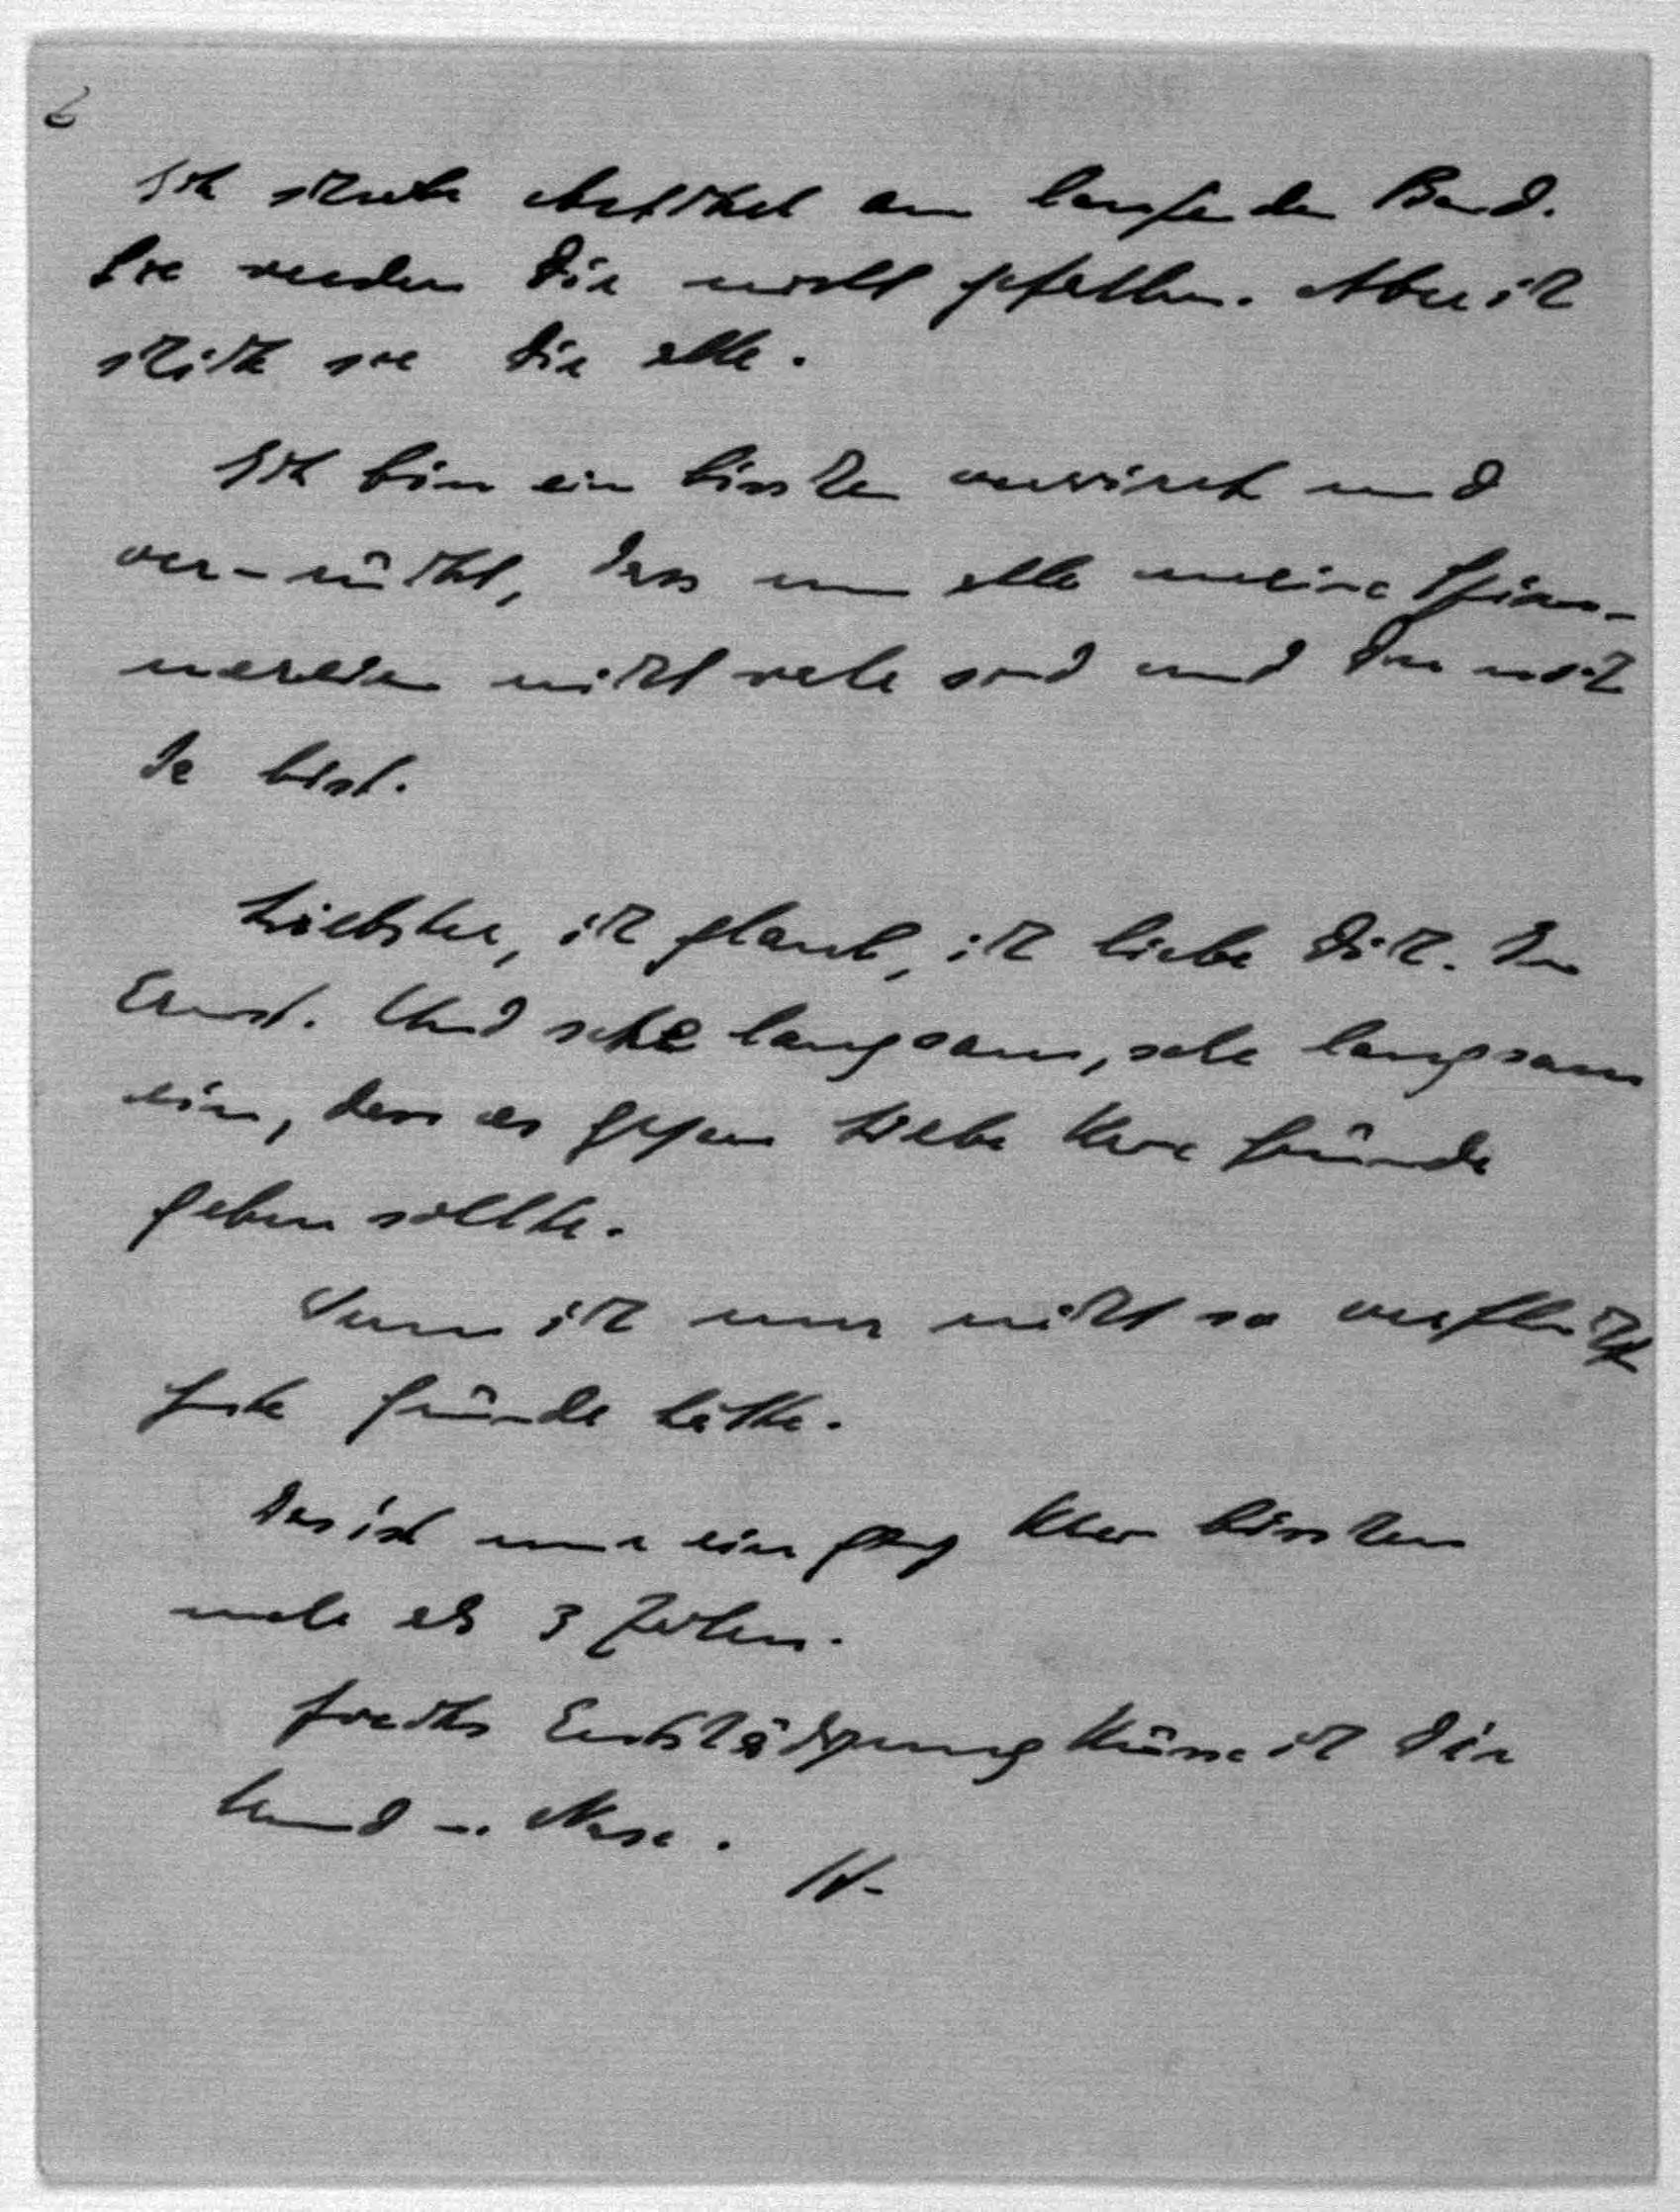 6
Ich schreibe Artikel am laufenden Band.
Sie werden Dir nicht gefallen. Aber ich
schick sie Dir alle.
Ich bin ein bisschen verwirrt und
ver-rückt, dass nun alle meine
nicht mehr sind und Du nicht
da bist.
Liebster, ich glaub, ich liebe Dich. Im
Ernst. Und sehe langsam, sehr langsam
ein, dass es gegen Liebe keine Gründe
geben sollte.
Wenn ich nur nicht so verflucht
gute Gründe hätte.
Das ist nur ein ganz klein bisschen
mehr als 3 Zeilen.
Zwecks Entschädigung küsse ich Dir
Mund u. Nase.
H-